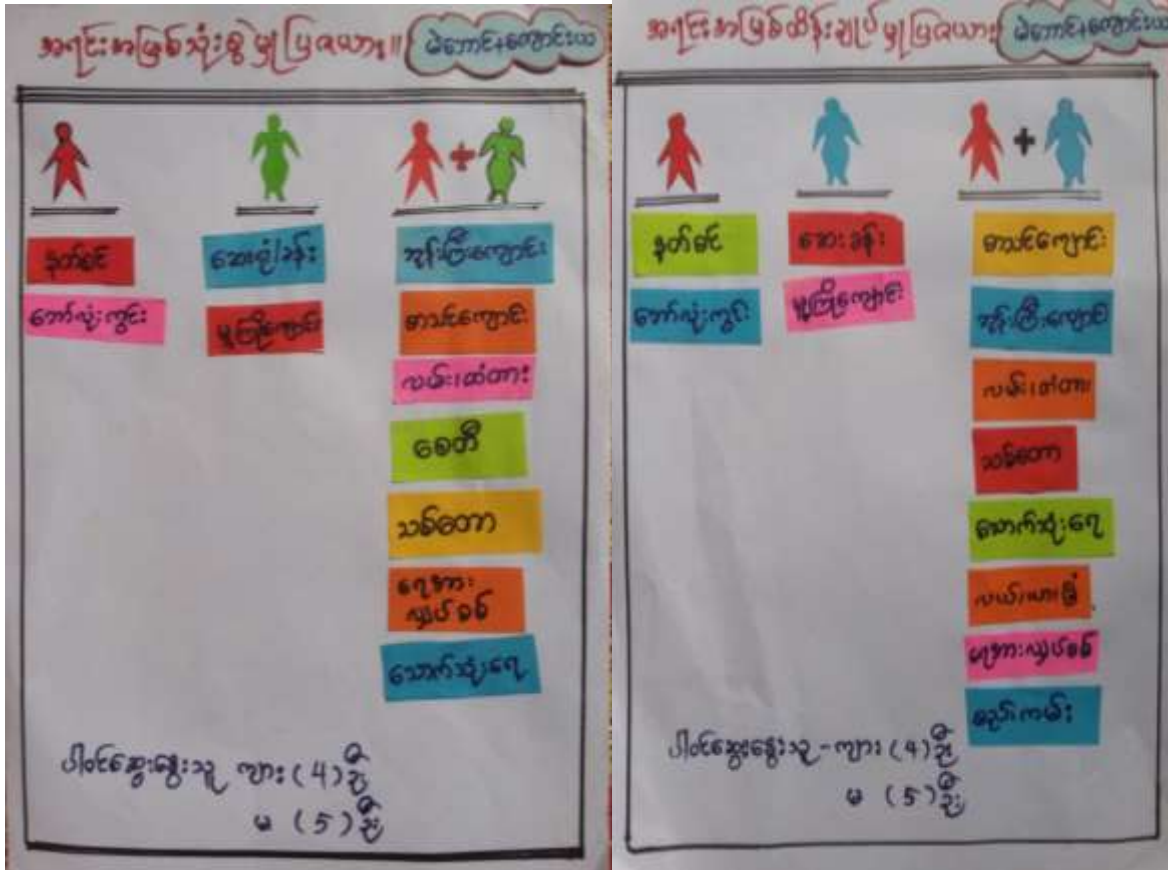 အရင်းအမြစ်သုံးစွဲမှုပြဇယား။
မဲဘောင်+ကျောင်းယ
နတ်စင်
ဘော်လုံးကွင်း
ဆေးရုံ/ခန်း
မူကြိုကျောင်း
ဘုန်းကြီးကျောင်း
စာသင်ကျောင်း
လမ်း၊တံတား
စေတီ
သစ်တော
ရေအား
လျှပ်စစ်
သောက်သုံးရေ
ပါဝင်ဆွေးနွေးသူ ကျား (4) ဦး
မ (5) ဦး
အရင်းအမြစ်ထိန်းချုပ်မှုပြဇယား
မဲဘောင်+ကျောင်းယ
နတ်စင်
ဘော်လုံးကွင်း
ဆေးခန်း
မူကြိုကျောင်း
စာသင်ကျောင်း
ဘုန်းကြီးကျောင်း
လမ်း၊တံတား
သစ်တော
သောက်သုံးရေ
လယ်/ယာ/ခြံ
ရေအားလျှပ်စစ်
ပါဝင်ဆွေးနွေးသူ - ကျား (4) ဦး
မ (5) ဦး